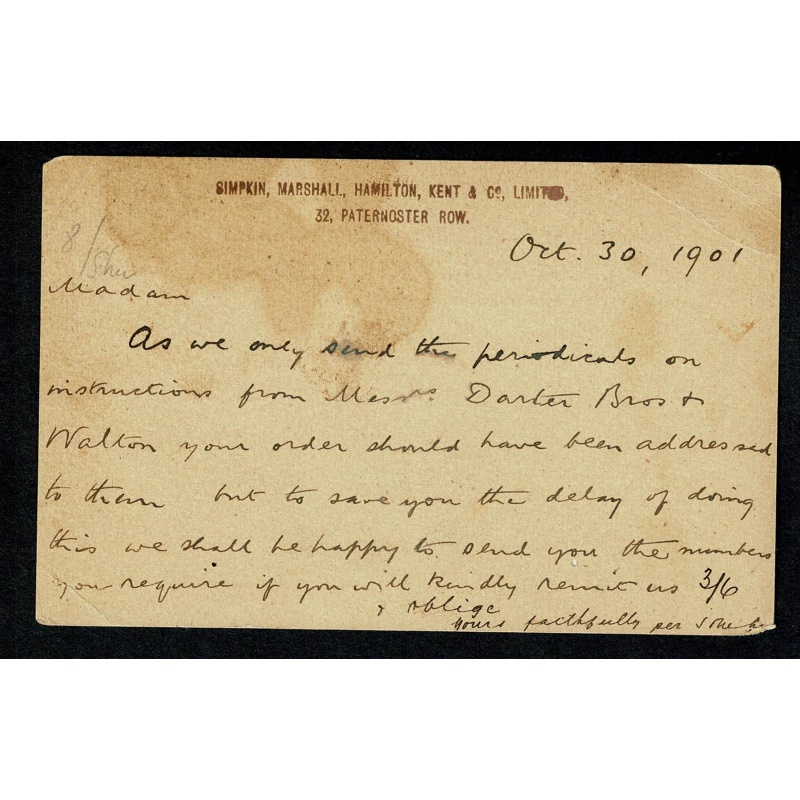 SIMPKIN, MARSHALL, HAMILTON, KENT & Co, LIMITED,
32, PATERNOSTER ROW.
Oct. 30, 1901
8/
Madam
As we only send the periodicals on
instructions from Messrs Darter Bros &
Walton your order should have been addressed
to them but to save you the delay of doing
this we shall be happy to send you the numbers
you require if you will kindly remit us 3/6
& oblige
yours faithfully per